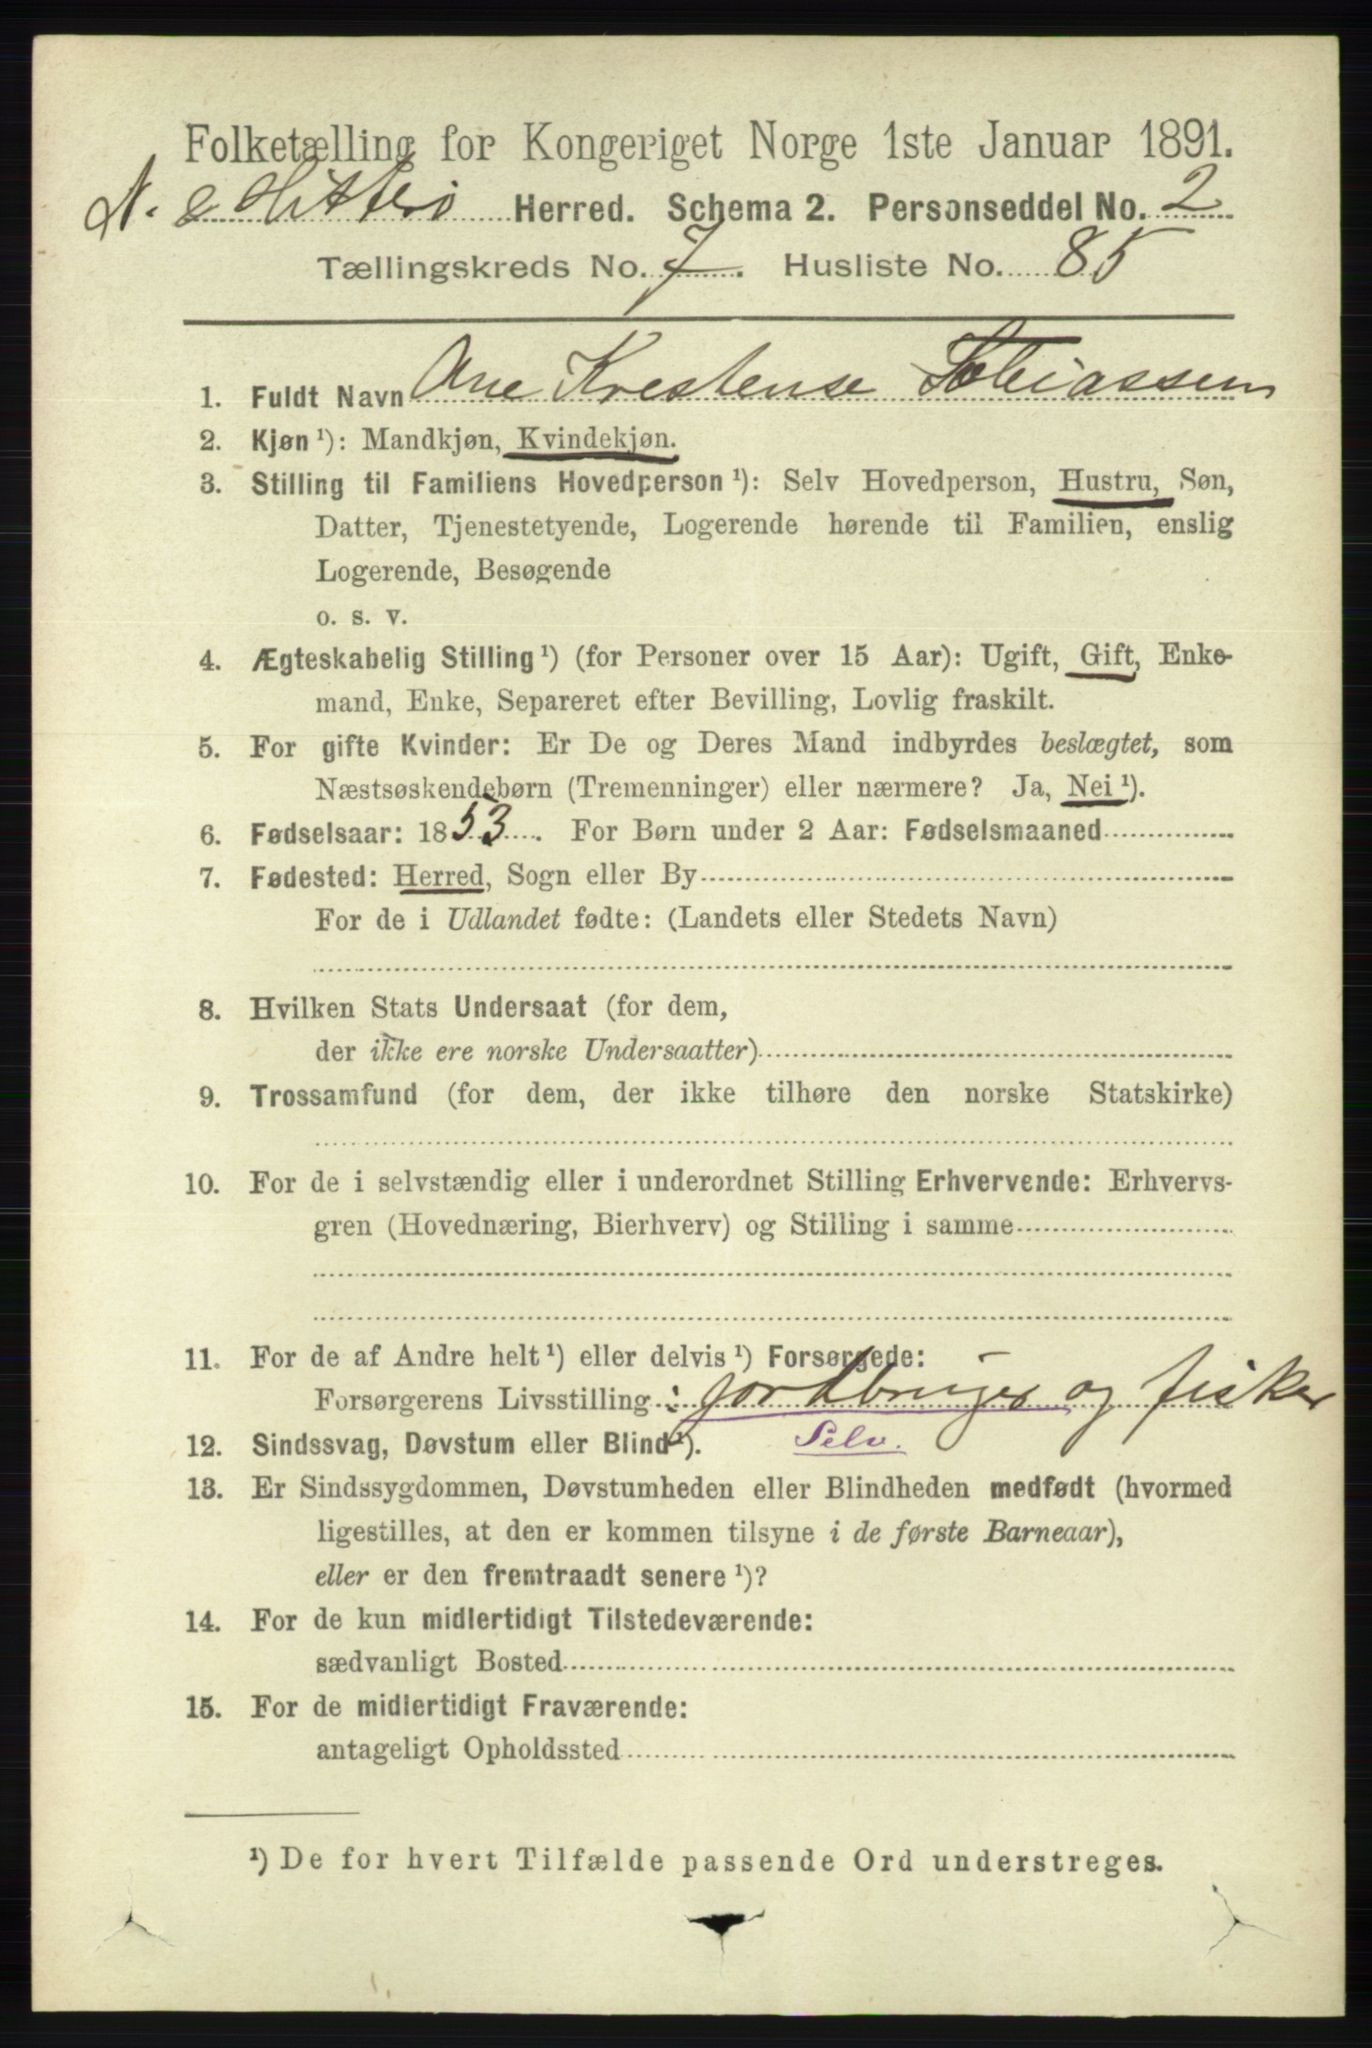 Folketælling for Kongeriget Norge 1ste Januar 1891.
N. & Hitterø Herred. Schema 2. Personseddel No. 2
Tællingskreds No. 7. Husliste No. 85
1. Fuldt Navn Ane Krestense Tobiassen
2. Kjøn ¹): Mandkjøn, Kvindekjøn.
3. Stilling til Familiens Hovedperson ¹): Selv Hovedperson, Hustru, Søn,
Datter, Tjenestetyende, Logerende hørende til Familien, enslig
Logerende, Besøgende
o. s. v.
4. Ægteskabelig Stilling ¹) (for Personer over 15 Aar): Ugift, Gift, Enke-
mand, Enke, Separeret efter Bevilling, Lovlig fraskilt.
5. For gifte Kvinder: Er De og Deres Mand indbyrdes beslægtet, som
Næstsøskendebørn (Tremenninger) eller nærmere? Ja, Nei ¹).
6. Fødselsaar: 1853. For Børn under 2 Aar: Fødselsmaaned
7. Fødested: Herred, Sogn eller By
For de i Udlandet fødte: (Landets eller Stedets Navn)
8. Hvilken Stats Undersaat (for dem,
der ikke ere norske Undersaatter)
9. Trossamfund (for dem, der ikke tilhøre den norske Statskirke)
10. For de i selvstændig eller i underordnet Stilling Erhvervende: Erhvervs-
gren (Hovednæring, Bierhverv) og Stilling i samme
11. For de af Andre helt ¹) eller delvis ¹) Forsørgede:
Forsørgerens Livsstilling: jordbruger og fisker
12. Sindssvag, Døvstum eller Blind ¹). Selv.
13. Er Sindssygdommen, Døvstumheden eller Blindheden medfødt (hvormed
ligestilles, at den er kommen tilsyne i de første Barneaar),
eller er den fremtraadt senere ¹)?
14. For de kun midlertidigt Tilstedeværende:
sædvanligt Bosted
15. For de midlertidigt Fraværende:
antageligt Opholdssted
¹) De for hvert Tilfælde passende Ord understreges.